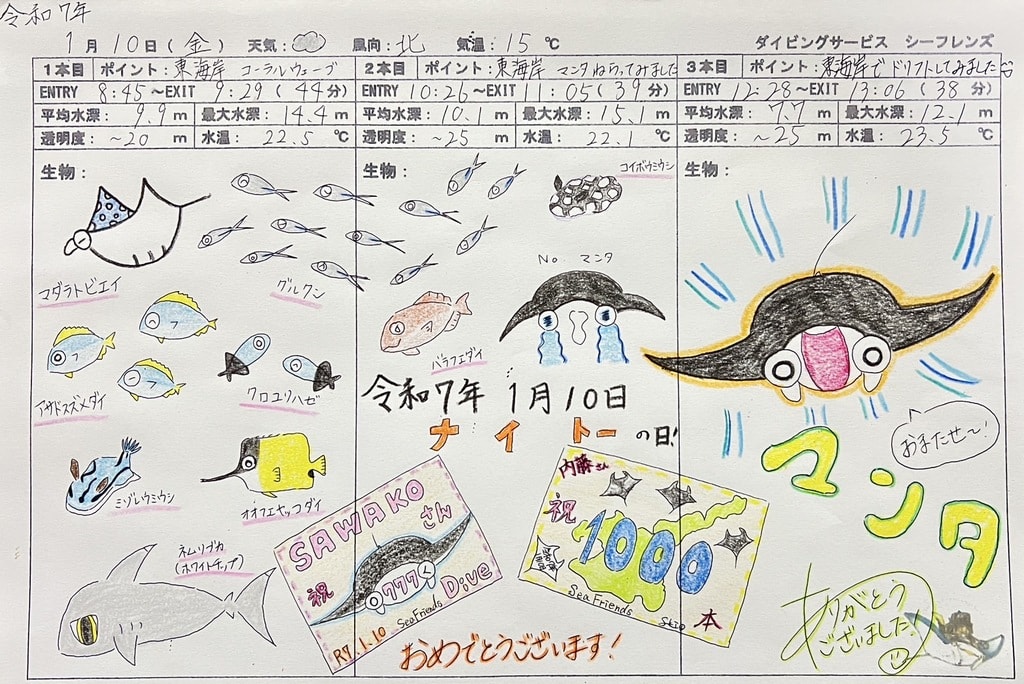 令和7年
1月10日(金) 天気: 風向:北 気温:15℃ ダイビングサービス シーフレンズ
1本目 ポイント:東海岸 コーラルウェーブ
ENTRY 8:45~EXIT 9:29(44分)
平均水深: 9.9m 最大水深: 14.4m
透明度: ~20m 水温: 22.5℃
生物:
マダラトビエイ
グルクン
アサドスズメダイ
クロユリハゼ
ミゾレウミウシ
オオフエヤッコダイ
ネムリブカ
(ホワイトチップ)
2本目 ポイント:東海岸 マンタねらってみました
ENTRY 10:26~EXIT 11:05(39分)
平均水深: 10.1m 最大水深: 15.1m
透明度: ~25m 水温: 22.1℃
生物:
コイボウミウシ
No マンタ
バラフエダイ
令和7年 1月10日
ナイトーの日!
SAWAKO
さん
祝
777
Dive
SeaFriends
R7.1.10
内藤さん
祝
1000
本
SeaFriends
おめでとうございます!
3本目 ポイント:東海岸でドリフトしてみました
ENTRY 12:28~EXIT 13:06(38分)
平均水深: 7.7m 最大水深: 12.1m
透明度: ~25m 水温: 23.5℃
生物:
おまたせ~!
マンタ
ありがとう
ございました!